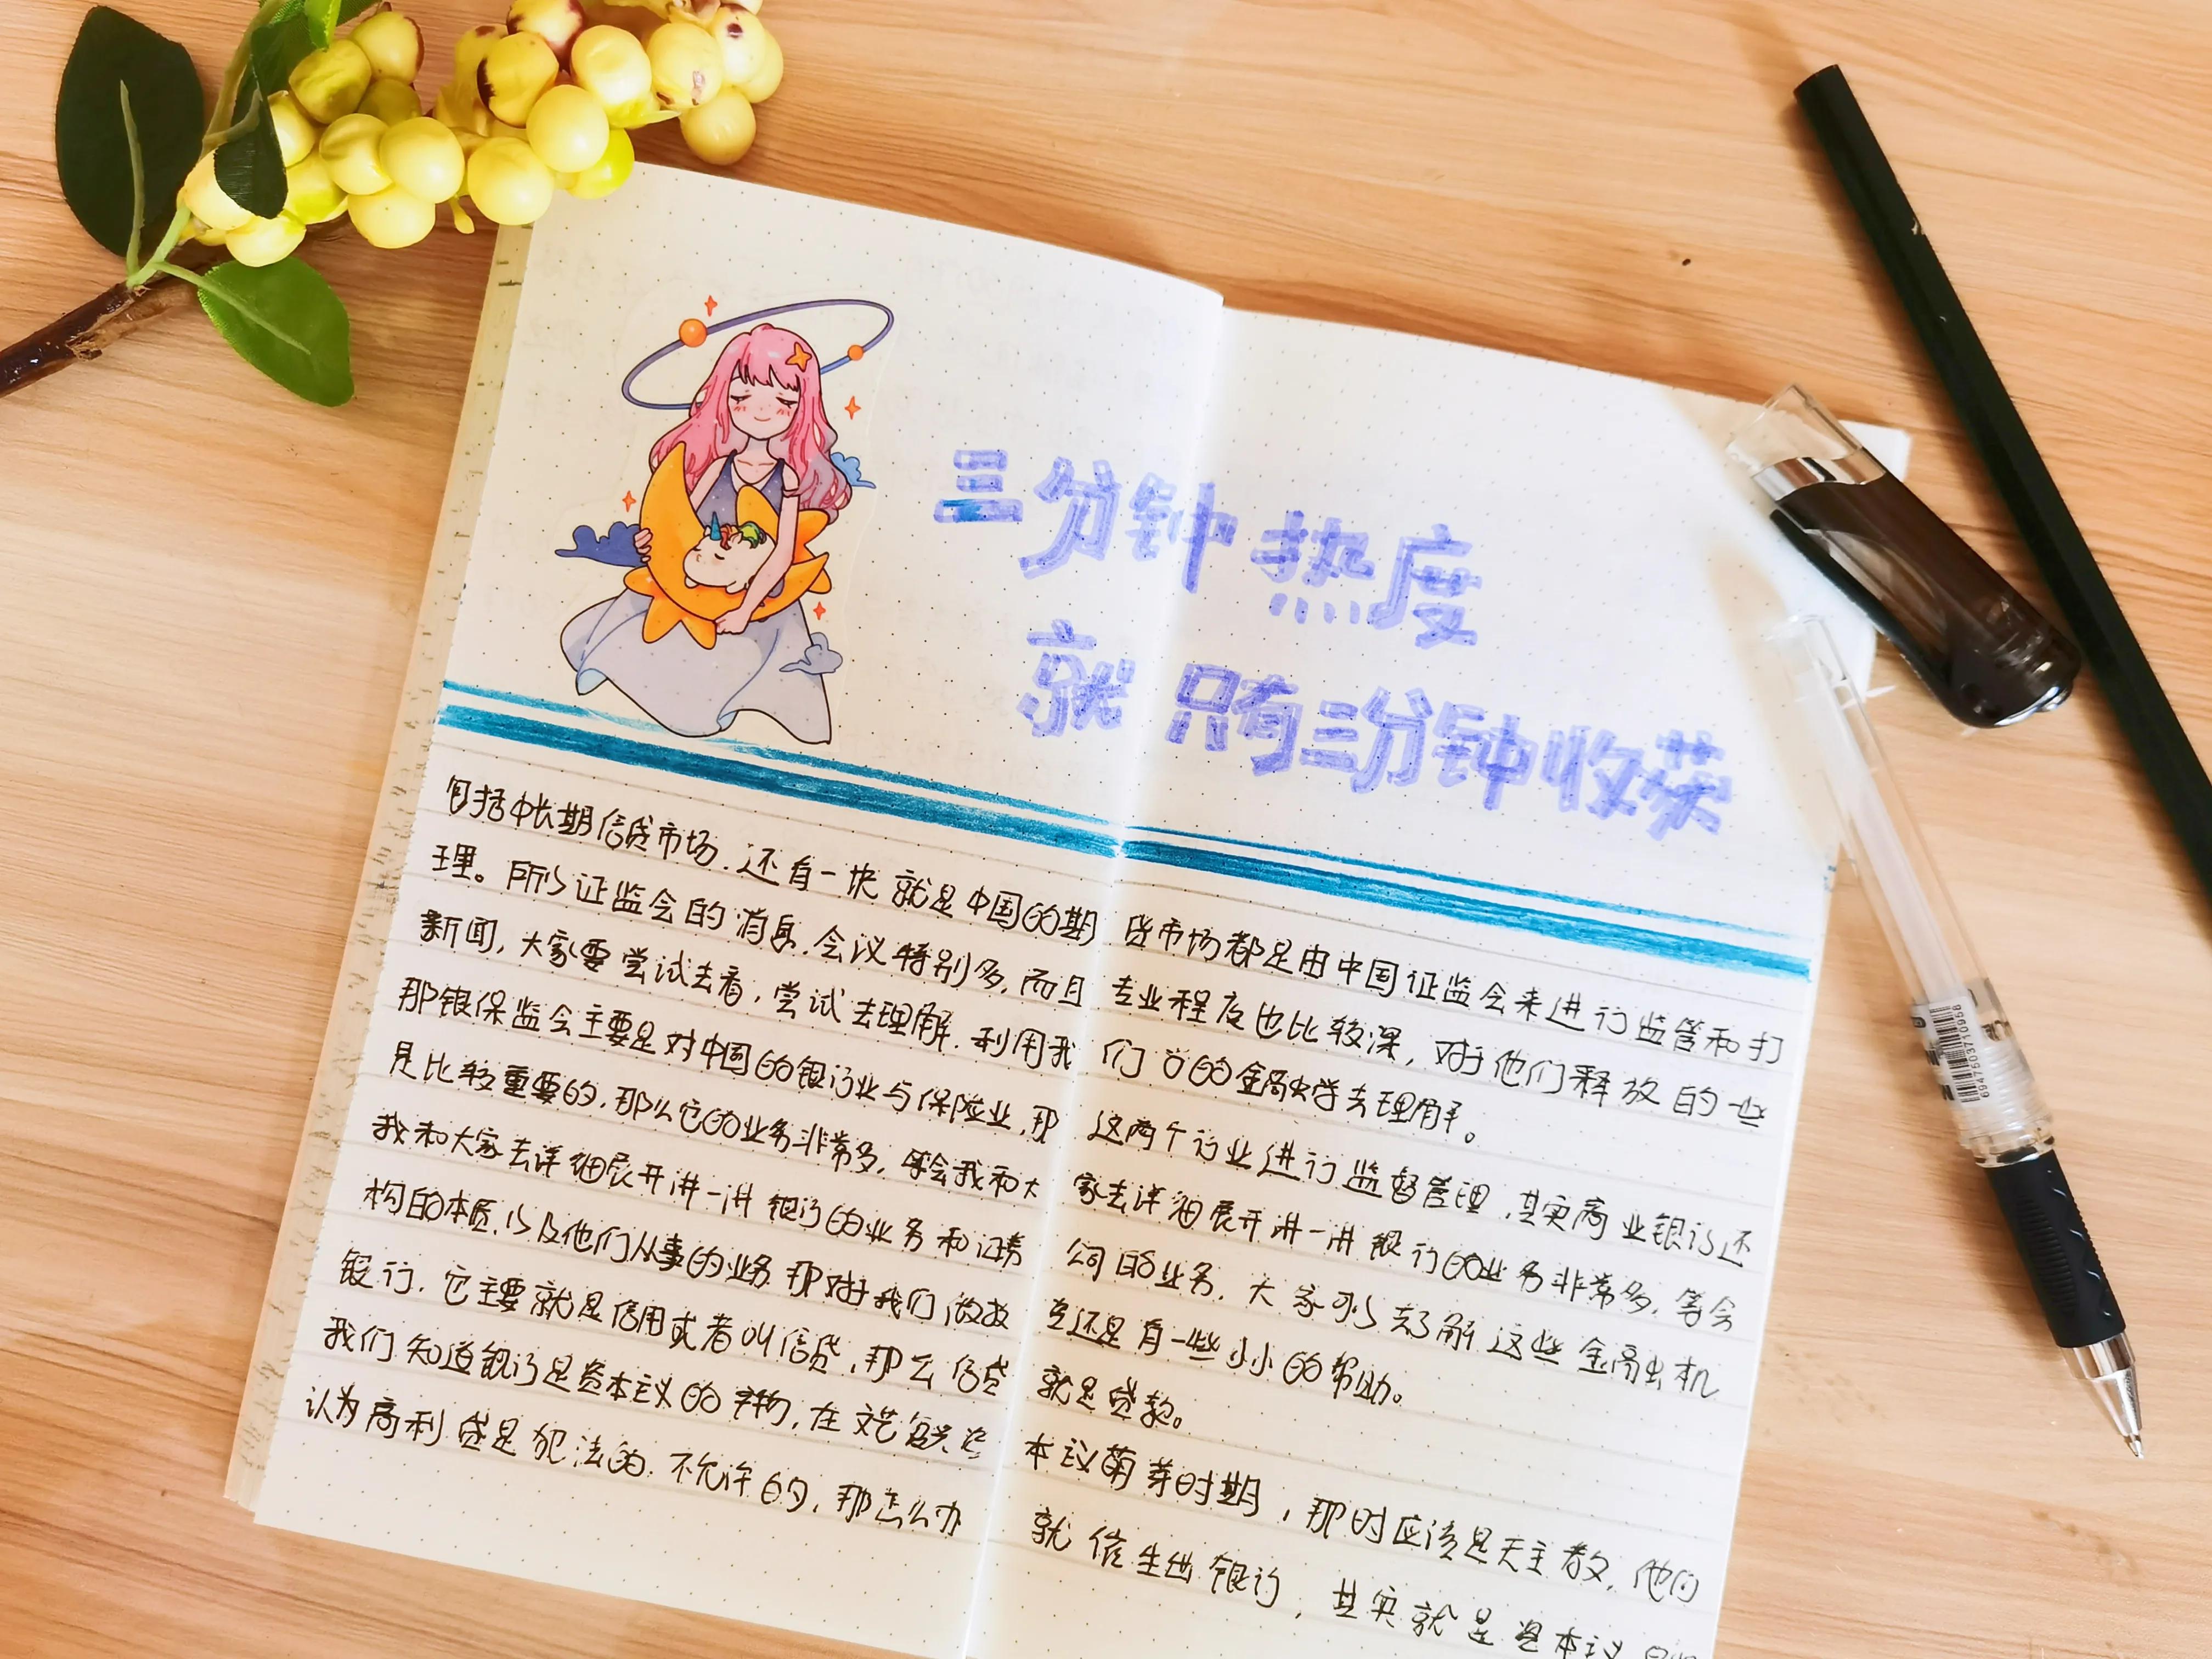 三分钟热度
就只有三分钟收获
包括中长期信贷市场.还有一块就是中国的期货市场都是由中国证监会来进行监管和打
理。所以证监会的消息.会议特别多,而且专业程度也比较深,对于他们释放的一些
新闻,大家要尝试去看,尝试去理解.利用我们学的金融学去理解。
那银保监会主要是对中国的银行业与保险业,那这两个行业进行监督管理,其实商业银行还
是比较重要的,那么它的业务非常多,等会我和大家去详细展开讲一讲银行的业务非常多,等会
我和大家去详细展开讲一讲银行的业务和证券公司的业务,大家可以去了解这些金融机
构的本质,以及他们从事的业务那对于我们做投资还是有一些小小的帮助。
银行,它主要就是信用或者叫信贷,那么信贷就是贷款。
我们知道银行是资本主义的产物,在文艺复兴资本主义萌芽时期,那时应该是天主教,他们
认为高利贷是犯法的,不允许的,那怎么办就催生出银行,其实就是资本主义
6947503710956